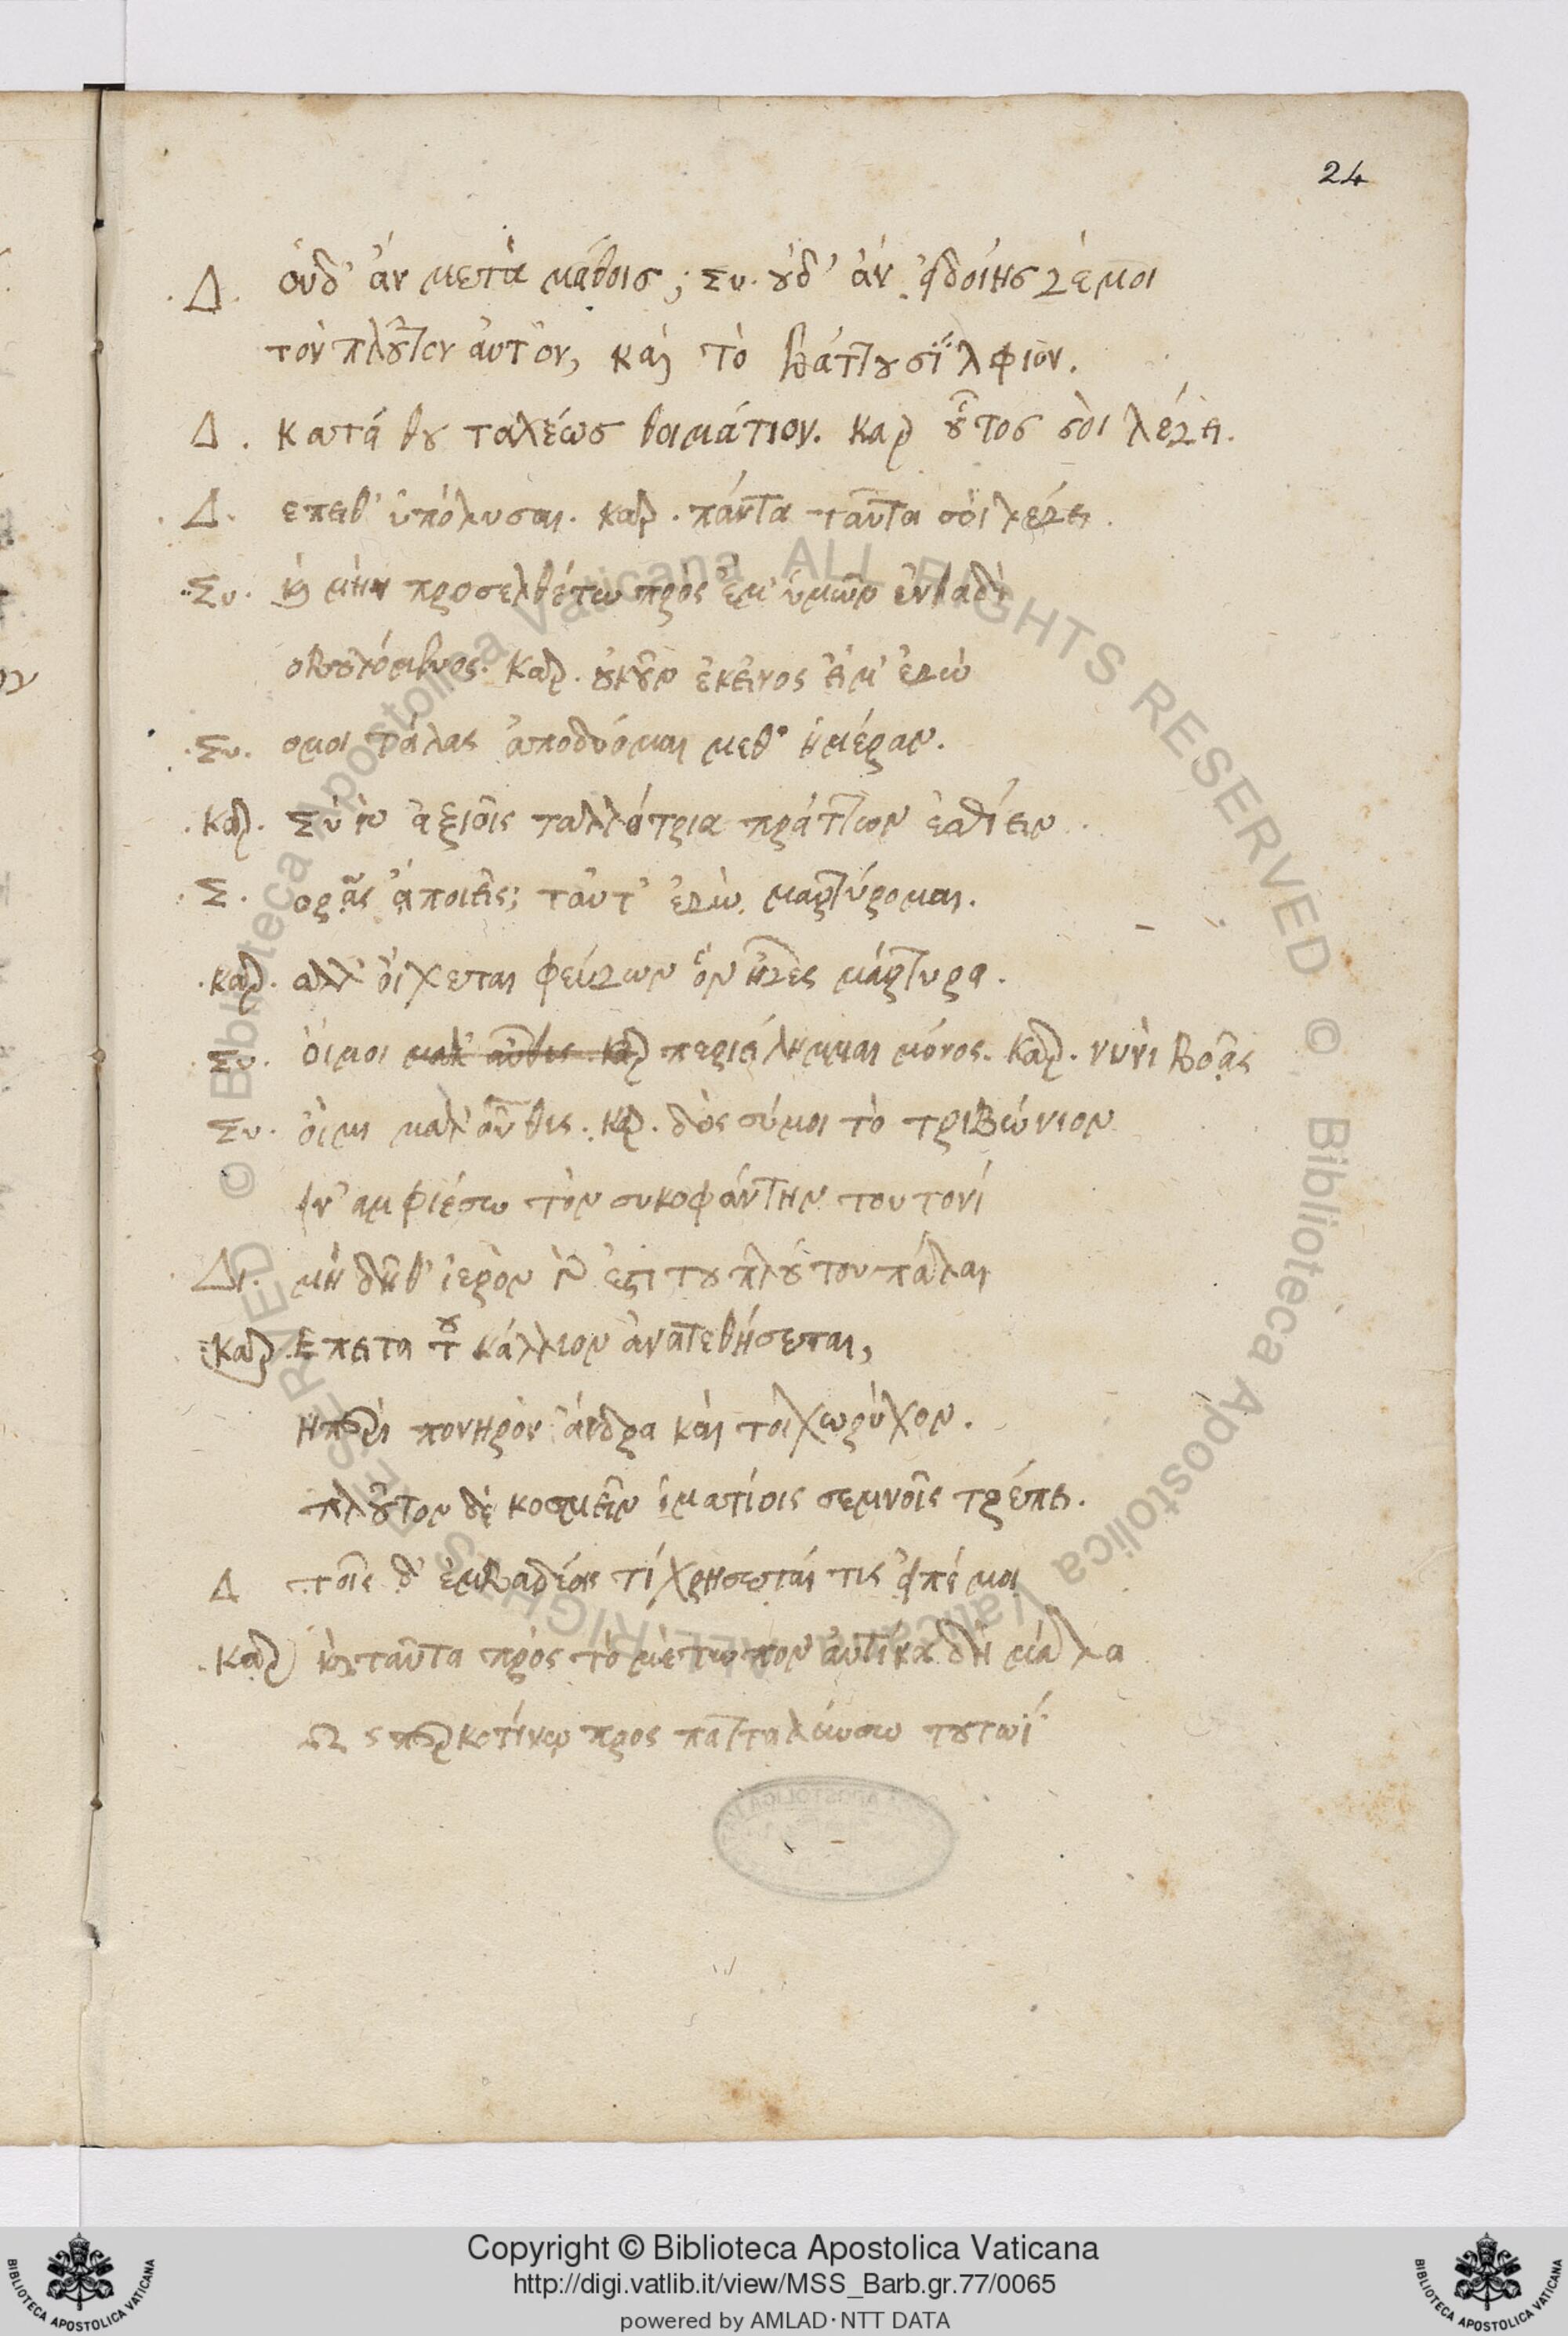 24
Δ. οὐδ' ἂν μετὰ μάθοισ; Συ. οὐδ' ἂν εἰ δοίης γέ μοι
τὸν πλοῦτον αὐτὸν, καὶ τὸ βάττου σίλφιον.
Δ. κατάθου ταχέωσ θοιμάτιον. Καρ οὗτος σὸι λέγει.
Δ. επειθ' ὑπόλυσαι. Καρ. πάντα ταῦτα σὸι λέγει.
Συ. καὶ μὴν προσελθέτω πρὸς ἔμ' ὑμῶν ἐνθαδὶ
ὁ βουλόμενος. Καρ. οὐκοῦν ἐκεῖνος εἰμ' ἐγὼ
Συ. οιμοι τάλας ἀποδύομαι μεθ' ἡμέραν.
Καρ. Σὺ γὰρ ἀξιοῖς ταλλότρια πράττων ἐσθίειν.
Σ. ορᾷς ἃ ποιεῖς; ταῦτ' ἐγὼ μαρτύρομαι.
Καρ. αλλ' ὀίχεται φεύγων ὃν ἦγες μάρτυρα.
Συ. ὀίμοι μαλ' αὖθις. Καρ περιείλημμαι μόνος. Καρ. νυνὶ βοᾷς
Συ. ὀίμι μαλ' αὖθις. Καρ. δὸς σύμοι τὸ τριβώνιον
ἵν' αμφιέσω τὸν συκοφάντην τουτονί
Δι. μὴ δῆθ' ἱερὸν γάρ ἐστι του πλούτου πάλαι
Καρ. Επειτα που κάλλιον ἀνατεθήσεται,
ἢ περὶ πονηρὸν ἄνδρα καὶ τοιχωρύχον.
πλοῦτον δὲ κοσμεῖν ἱματίοις σεμνοῖς πρέπει.
Δ τοῖς δ' ἐμβαδίοις τί χρησεταί τις εἰπέ μοι
Καρ καὶ ταῦτα πρὸς τὸ μέτωπον αὐτίκα δὴ μάλα
Ωσπερ κοτίνῳ προς πατταλεύσω τουτωί
Copyright © Biblioteca Apostolica Vaticana
http://digi.vatlib.it/view/MSS_Barb.gr.77/0065
powered by AMLAD·NTT DATA
BIBLIOTECA APOSTOLICA VATICANA
BIBLIOTECA APOSTOLICA VATICANA
© Biblioteca Apostolica Vaticana ALL RIGHTS RESERVED © Biblioteca Apostolica Vaticana ALL RIGHTS RESERVED